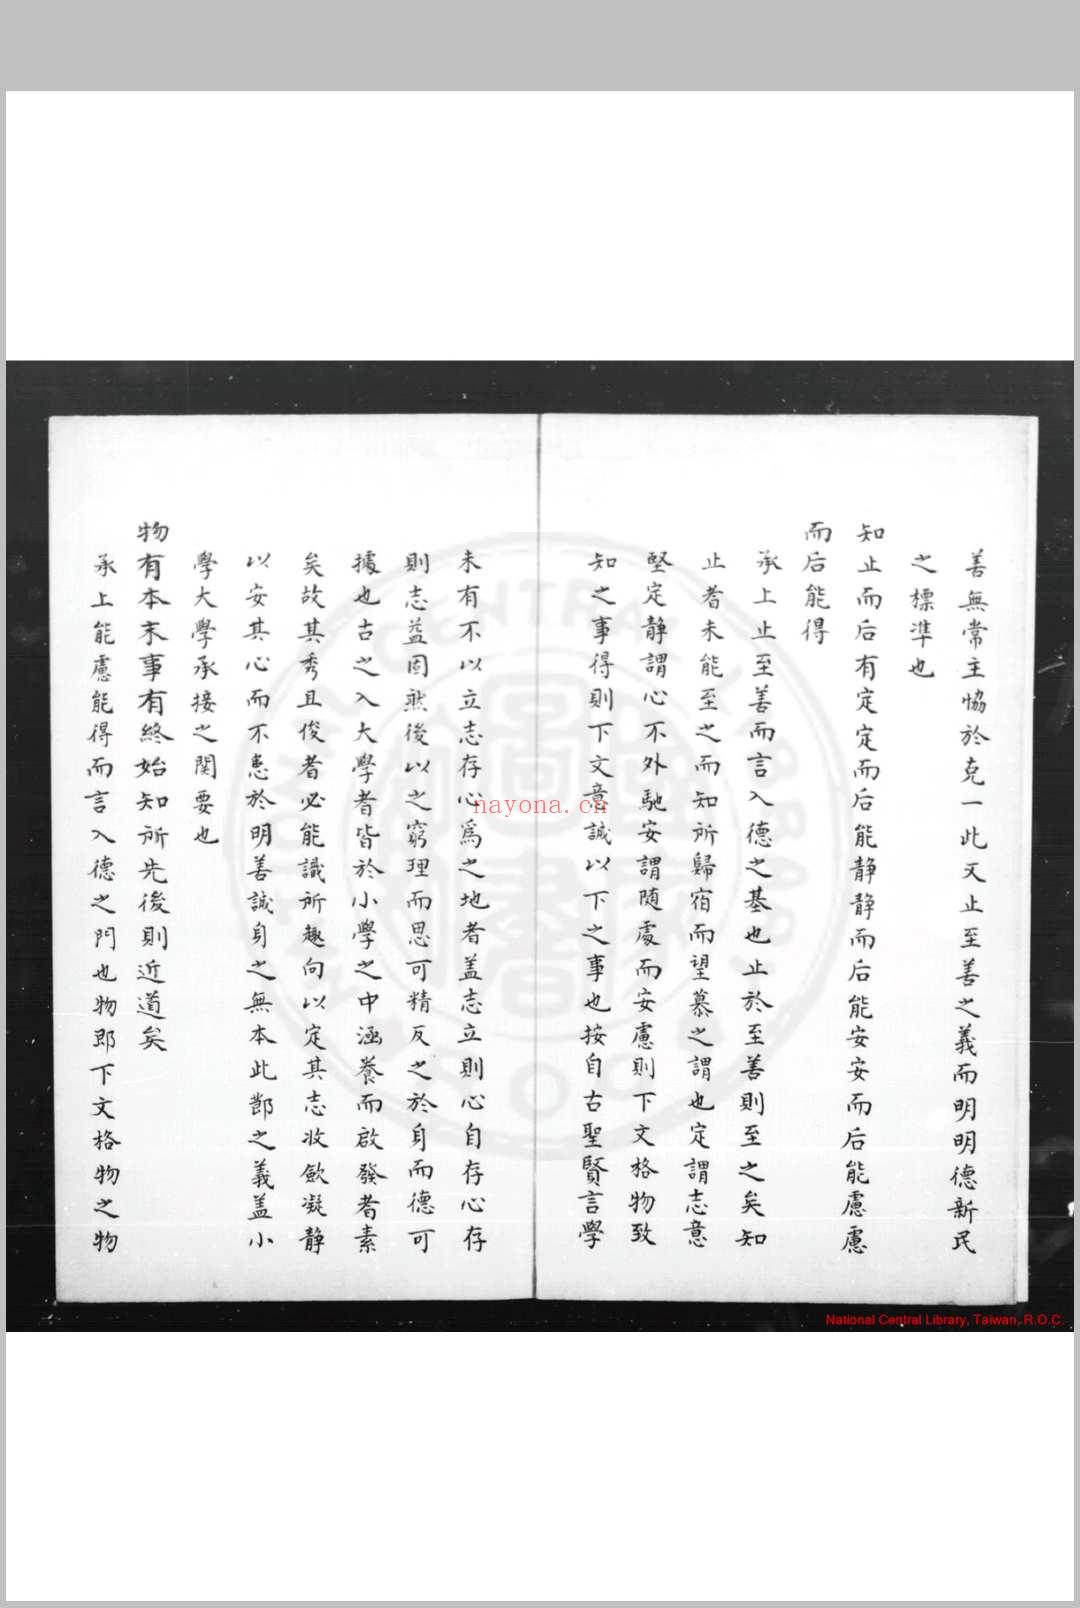 善無常主恊於克一此又止至善之義而明明德新民
之標凖也
知止而后有定定而后能静静而后能安安而后能慮慮
而后能得
承上止至善而言入德之基也止於至善則至之矣知
止者未能至之而知所歸宿而望慕之謂也定謂志意
堅定静謂心不外馳安謂随處而安慮則下文格物致
知之事得則下文意誠以下之事也按自古聖賢言學
未有不以立志存心爲之地者盖志立則心自存心存
則志益固然後以之窮理而思可精反之於身而德可
據也古之入大學者皆於小學之中涵養而啟發者素
矣故其秀且俊者必能識所趣向以定其志收斂凝静
以安其心而不患於明善誠身之無本此鄧之義盖小
學大學承接之関要也
物有本末事有終始知所先後則近道矣
承上能慮能得而言入德之門也物即下文格物之物
nayona.cn
National Central Library, Taiwan, R.O.C.